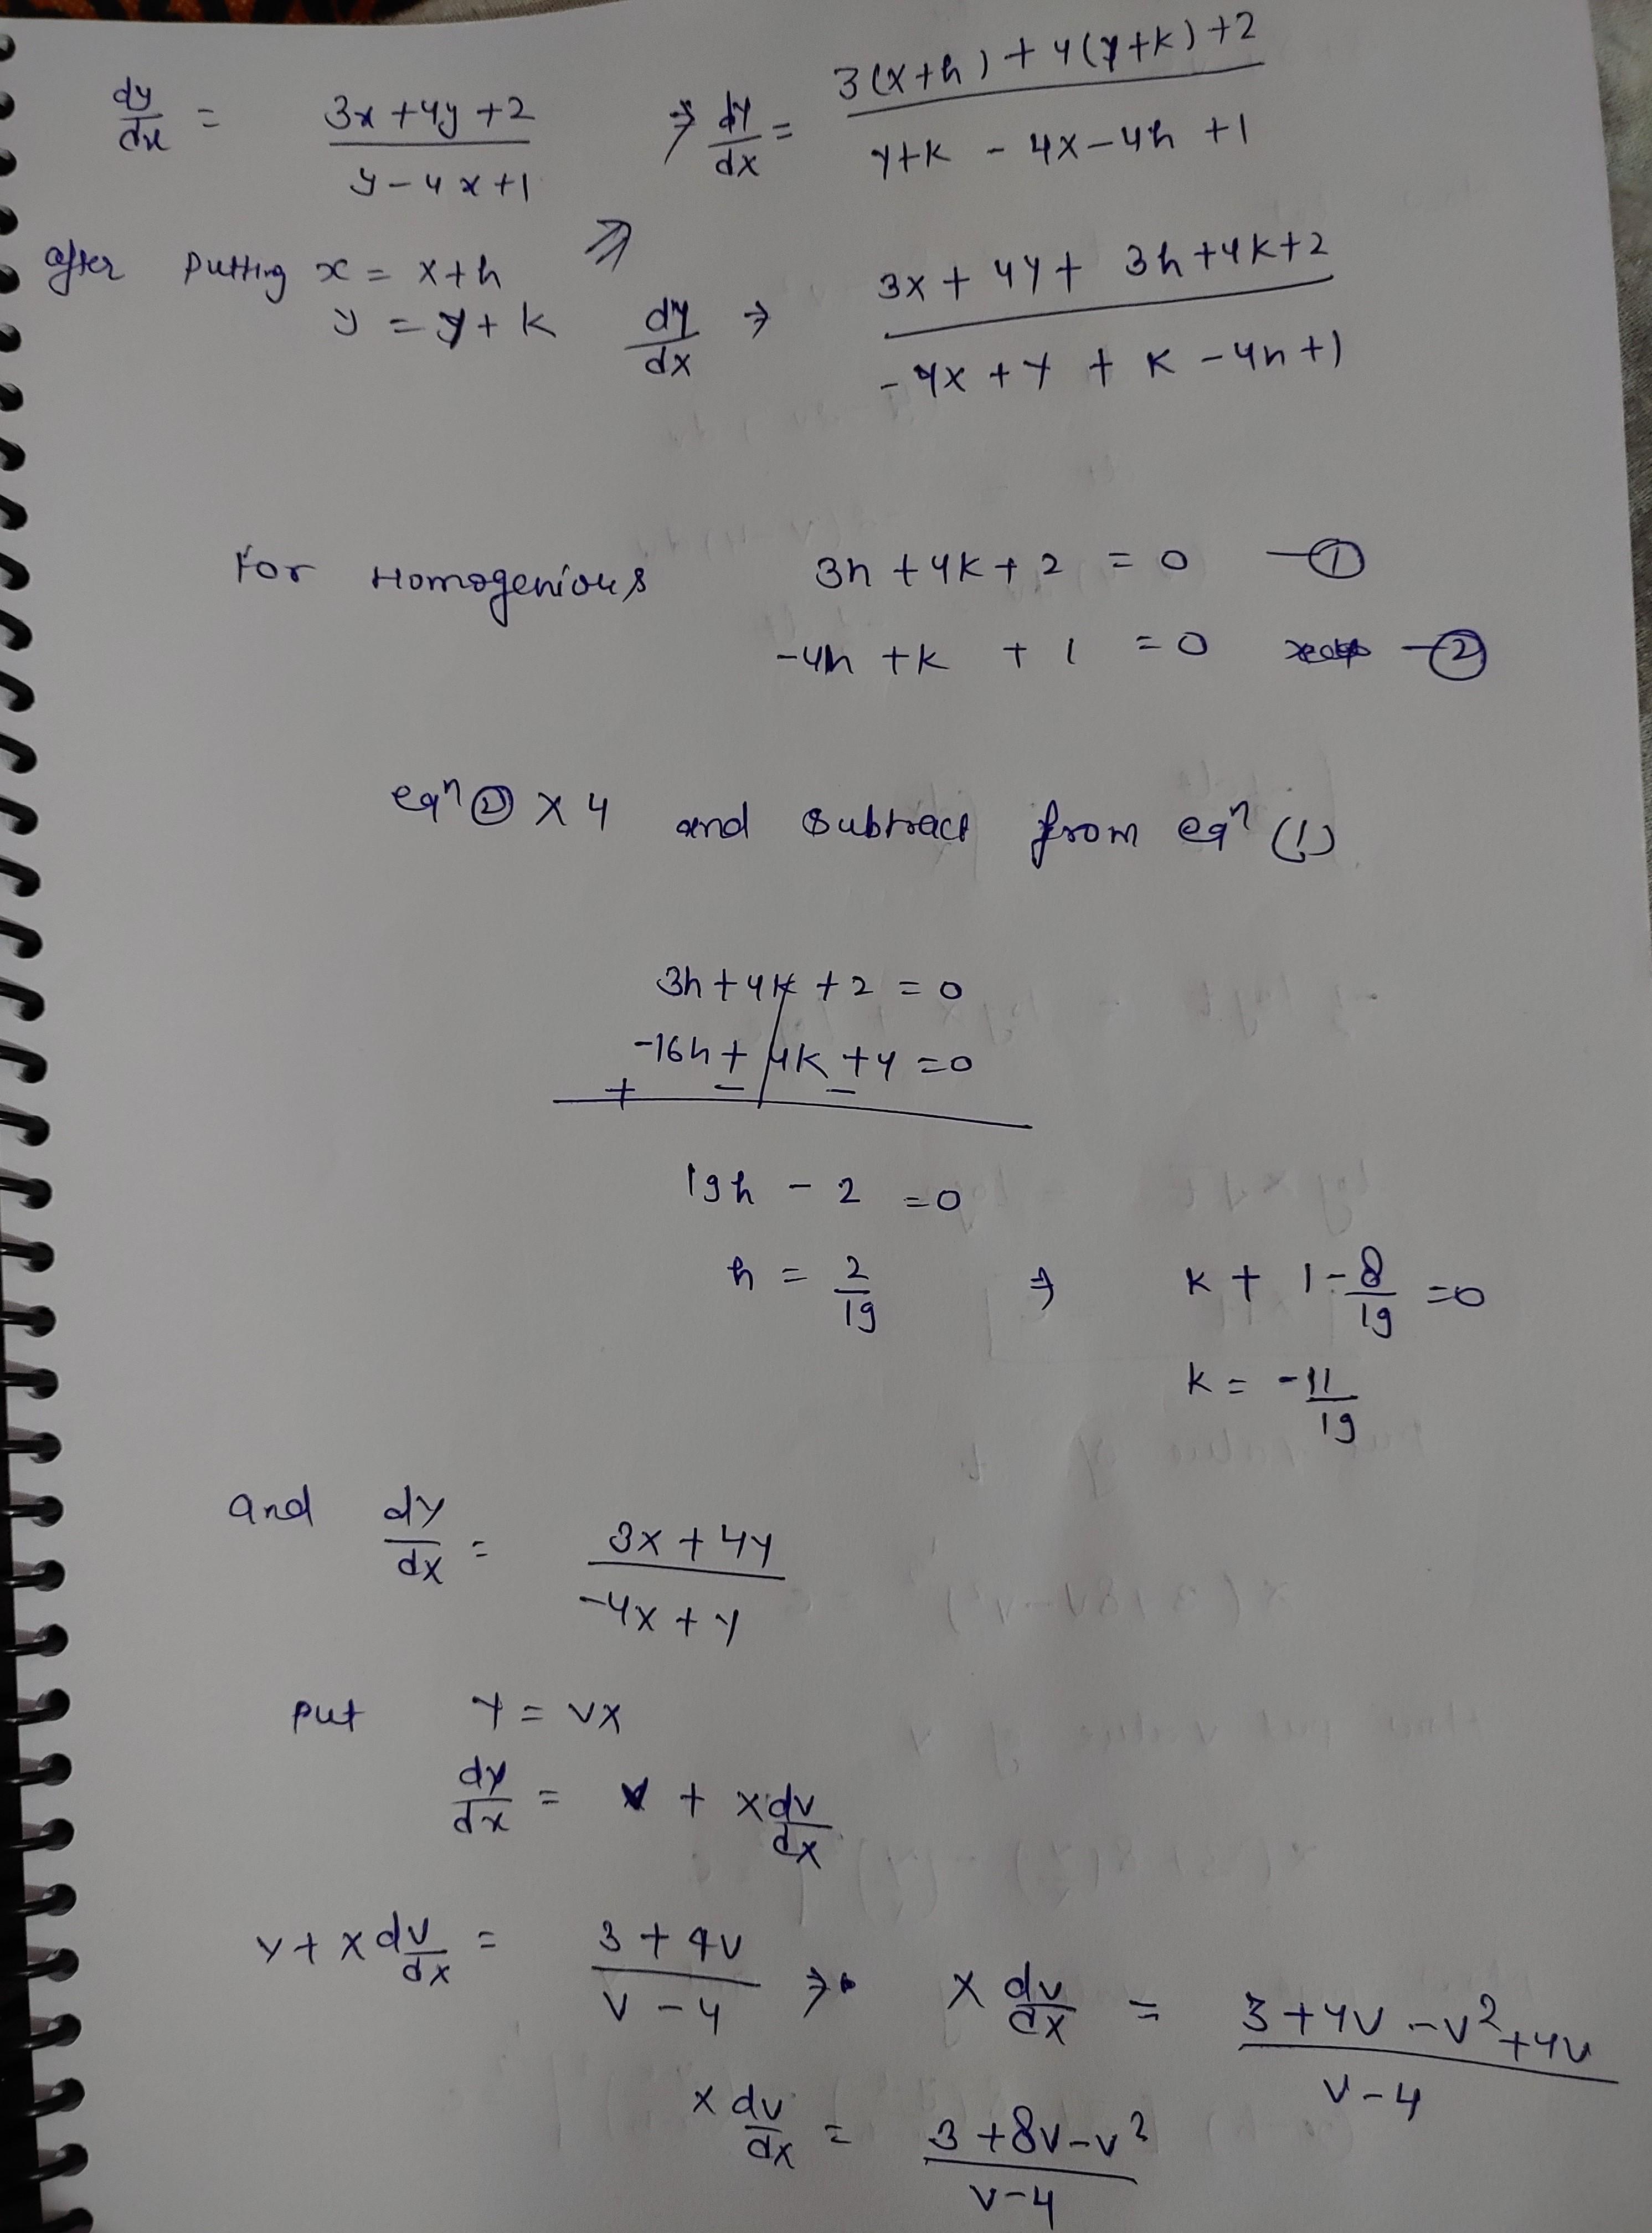 dy/dx = (3x + 4y + 2)/(y - 4x + 1) ⇒ dY/dX = (3(X+h) + 4(Y+k) + 2)/(Y+k - 4X - 4h + 1)
after putting x = X+h ⇒
y = Y+k dY/dX ⇒ (3X + 4Y + 3h + 4k + 2)/(-4X + Y + k - 4h + 1)
For Homogenious 3h + 4k + 2 = 0 —①
-4h + k + 1 = 0 —②
eqn ② X 4 and subtract from eqn (1)
3h + 4k + 2 = 0
-16h + 4k + 4 = 0
+ - -
19h - 2 = 0
h = 2/19 ⇒ k + 1 - 8/19 = 0
k = -11/19
and dY/dX = (3X + 4Y)/(-4X + Y)
put Y = VX
dy/dx = V + X dv/dX
V + X dv/dX = (3 + 4V)/(V - 4) ⇒ X dv/dX = (3 + 4V - V² + 4V)/(V - 4)
X dv/dX = (3 + 8V - V²)/(V - 4)